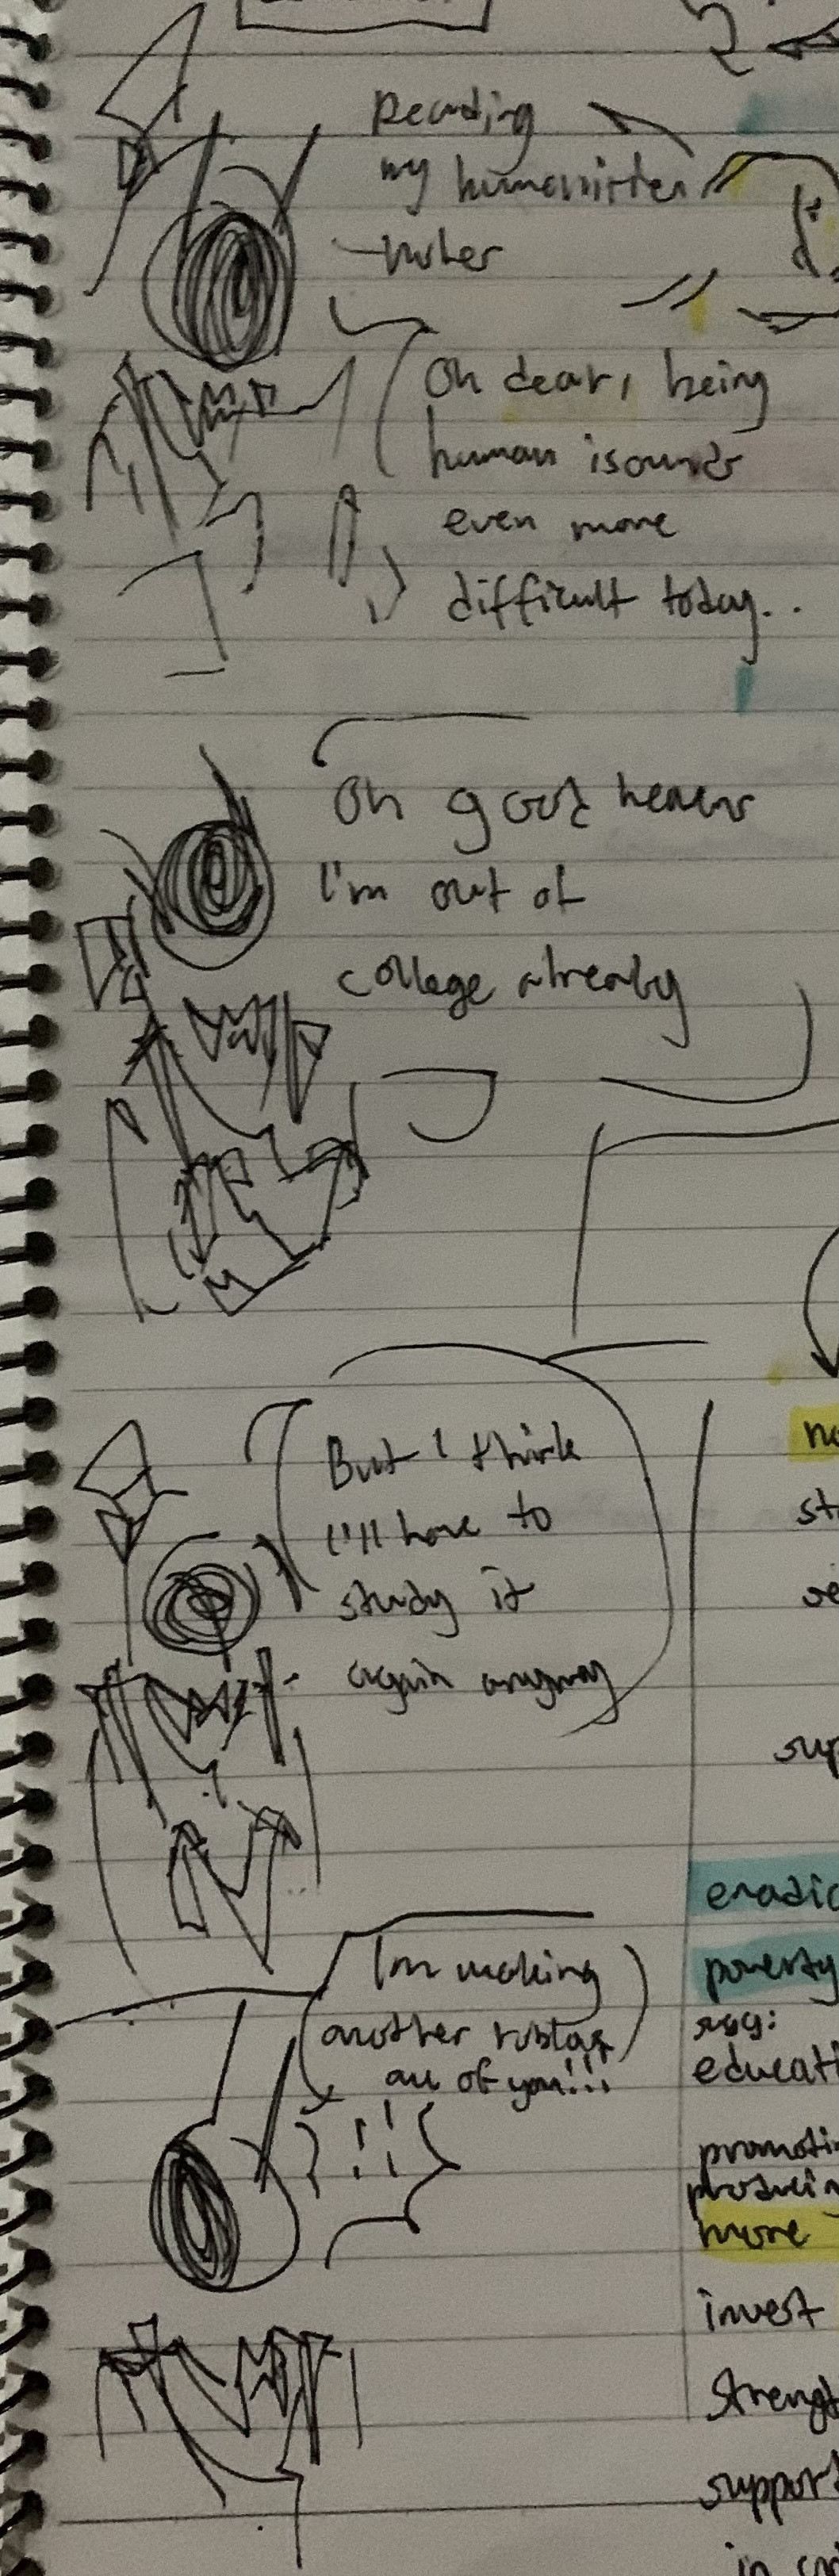 2
Reading
my humanities
notes
Oh dear, being
human isounds
even more
difficult today..
Oh good heavens
I'm out of
college already
But I think
I'll have to
study it
again anyway
I'm making
another
all of you!!!
!!
no
st
sup
eradic
poverty
educati
promotin
producin
more
invest
strengt
support
in